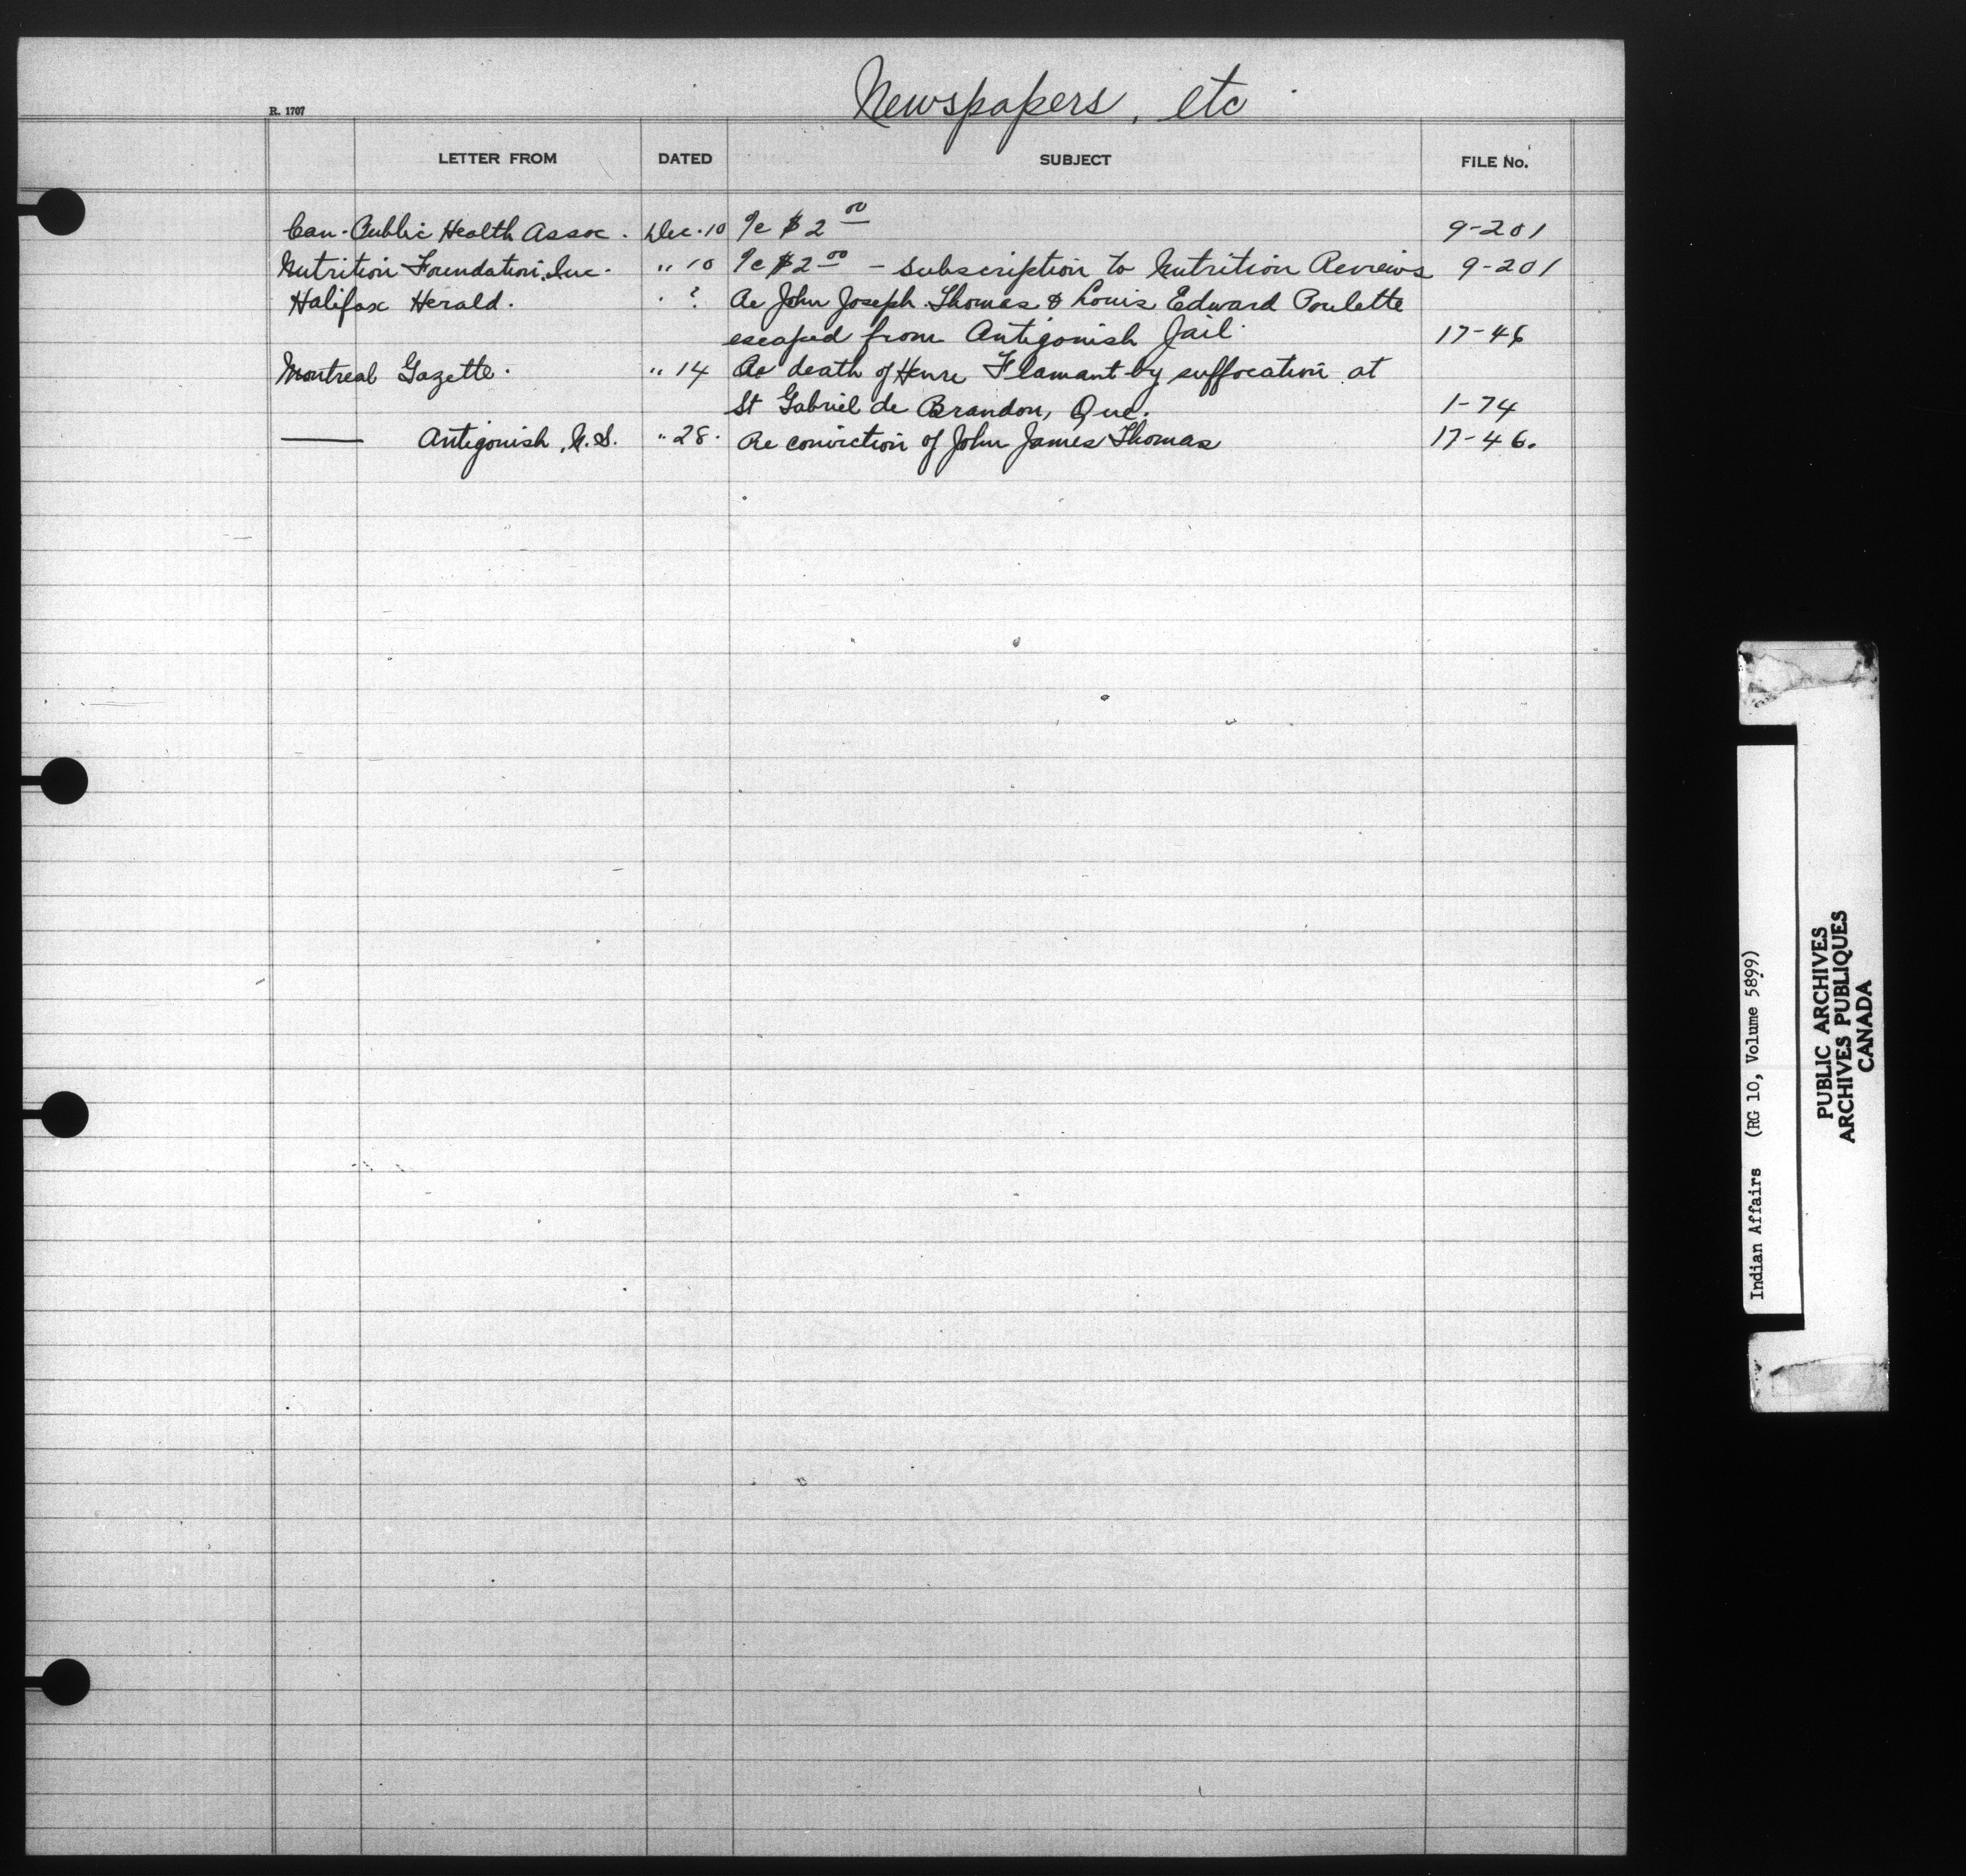 Newspapers, etc
R. 1707
LETTER FROM DATED SUBJECT FILE No.
Can. Public Health Assoc. Dec. 10 $2 00 9-201
Nutrition Foundation, Inc. " 10 $2 00 - subscription to Nutrition Reviews 9-201
Halifax Herald. " ? Re John Joseph Thomas & Louis Edward Poulette
escaped from Antigonish Jail. 17-46
Montreal Gazette. " 14 Re death of Flamant by suffocation at
St Gabriel de Brandon, Que. 1-74
Antigonish, N.S. " 28. Re conviction of John James Thomas 17-46.
Indian Affairs (RG 10, Volume 5899)
PUBLIC ARCHIVES
ARCHIVES PUBLIQUES
CANADA